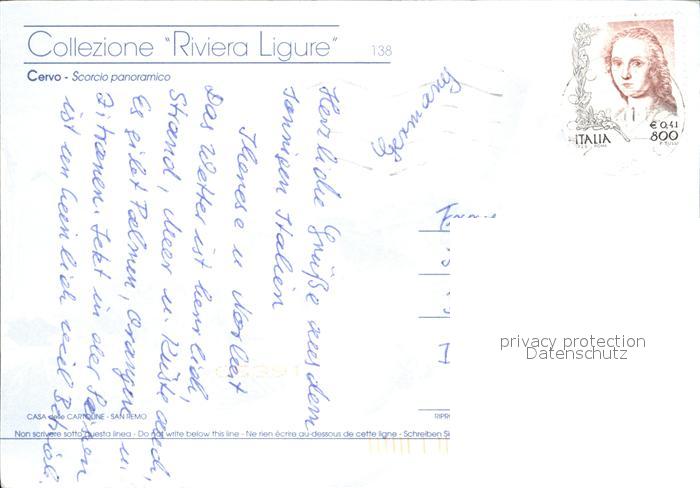 Collezione "Riviera Ligure"
138
Cervo - Scorcio panoramico
Germany
Herzliche Grüße aus dem
sonnigen Italien
Therese u Norbert
Das Wetter ist herrlich,
Strand, Meer u. Küste auch,
Es gibt Palmen, Orangen u.
Zitronen. Jetzt in der Saison
ist unheimlich viel Betrieb.
€ 0,41
ITALIA 800
CASA delle CARTOLINE - SAN REMO
Non scrivere sotto questa linea - Do not write below this line - Ne rien écrire au-dessous de cette ligne - Schreiben
privacy protection
Datenschutz